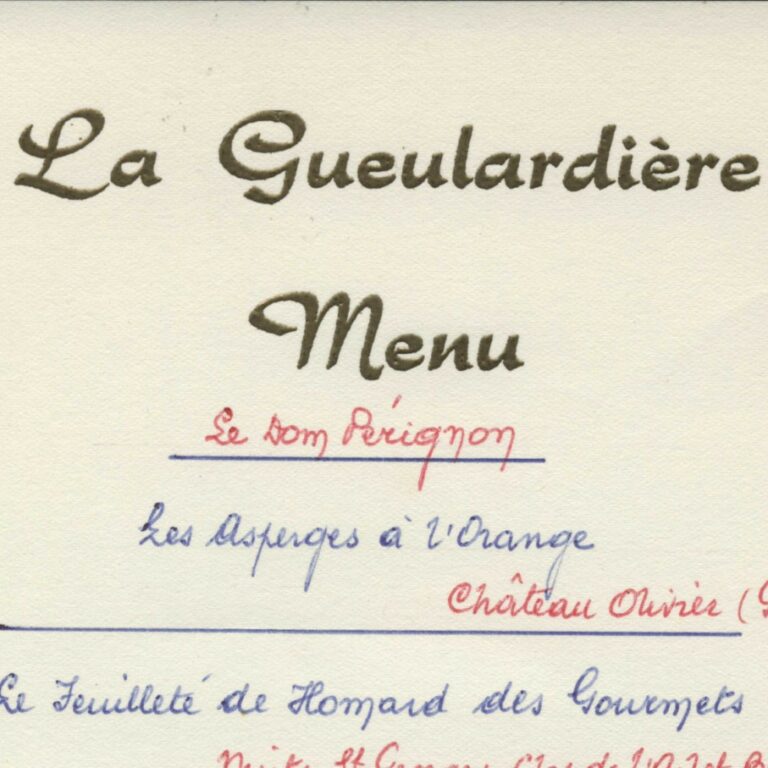 La Gueulardière
Menu
Le Dom Pérignon
Les Asperges à l'Orange
Château Olivier (
Le Feuilleté de Homard des Gourmets